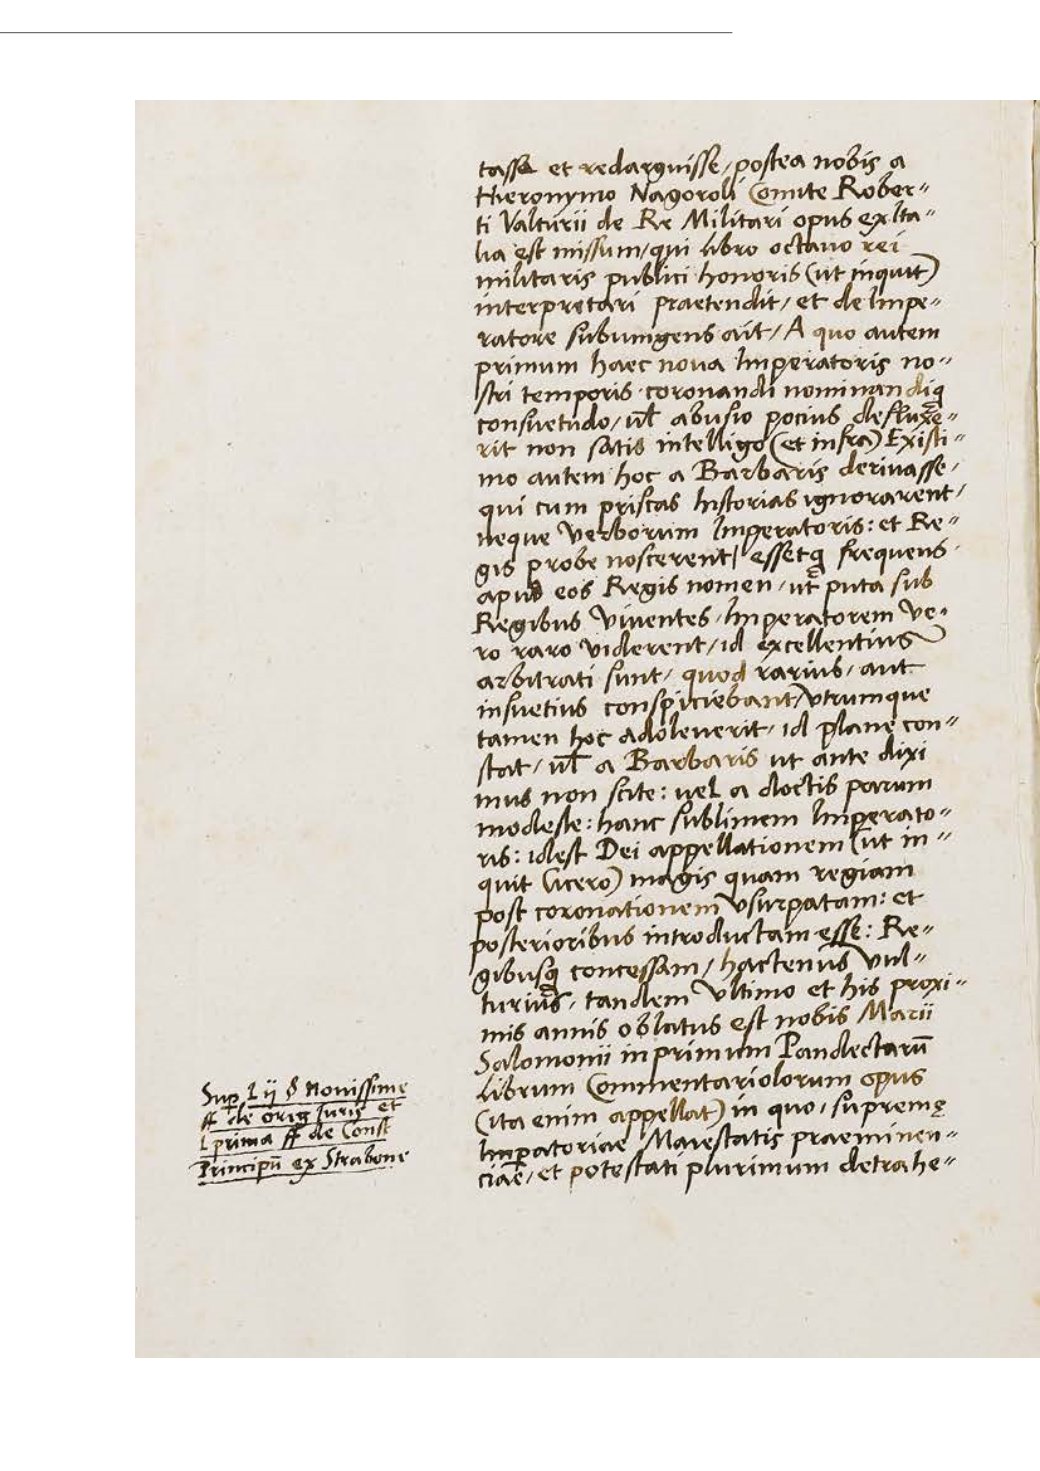 tasse et redarguisse, postea nobis a
Hieronymo Nagoroli Comite Rober-
ti Valturii de Re Militari opus ex Ita-
lia est missum, qui libro octauo rei
militaris publici honoris (ut inquit)
interpretari praetendit, et de Impe-
ratore subiungens ait, A quo autem
primum haec noua Imperatoris no-
stri temporis coronandi nominandiq
consuetudo, ul abusio pocius defluxe-
rit non satis intelligo (et infra) Existi-
mo autem hoc a Barbaris deriuasse,
qui cum priscas historias ignorarent,
neque verborum Imperatoris: et Re-
gis probe noscerent, essetq frequens
apud eos Regis nomen, ut puta sub
Regibus viuentes, Imperatorem ve-
ro raro viderent, id excellentius
arbitrati sunt, quod rarius, aut
insuetius conspiciebant, vtrumque
tamen hoc adoleuerit, id plane con-
stat, ul a Barbaris ut ante dixi
mus non scite: uel a doctis parum
modeste: hanc sublimem Imperato-
ris: idest Dei appellationem (ut in-
quit Cicero) magis quam regiam
post coronationem vsurpatam: et
posterioribus introductam esse: Re-
gibusq concessam, hactenus Vul-
turius, tandem vltimo et his proxi-
mis annis oblatus est nobis Marii
Salomonii in primum Pandectarū
librum Commentariolorum opus
(ita enim appellat) in quo, supremę
Impatoriae Maiestatis praeminen-
ciae, et potestati plurimum detrahe-
Sup L ij § Nouissime
ff de orig Iuris et
L prima ff de Const
Principū ex Strabone